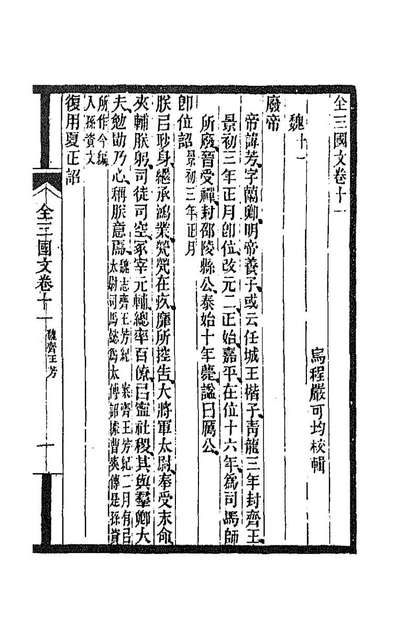 全三國文卷十一
烏程嚴可均校輯
魏十一
廢帝
帝諱芳字蘭卿明帝養子或云任城王楷子青龍三年封齊王
景初三年正月卽位改元二正始嘉平在位十六年爲司馬師
所廢晉受禪封邵陵縣公泰始十年薨謚曰厲公
卽位詔景初三年正月
朕㠯眇身繼承鴻業煢煢在疚靡所控告大將軍太尉奉受末命
夾輔朕躬司徒司空冢宰元輔總率百僚㠯寧社稷其與羣卿大
夫勉勖乃心稱朕意焉魏志齊王芳紀案齊王芳紀二月有㠯
太尉司馬懿爲太傅詔據曹爽傳是孫資
所作今編
入孫資文
復用夏正詔
全三國文卷十一
魏齊王芳
一